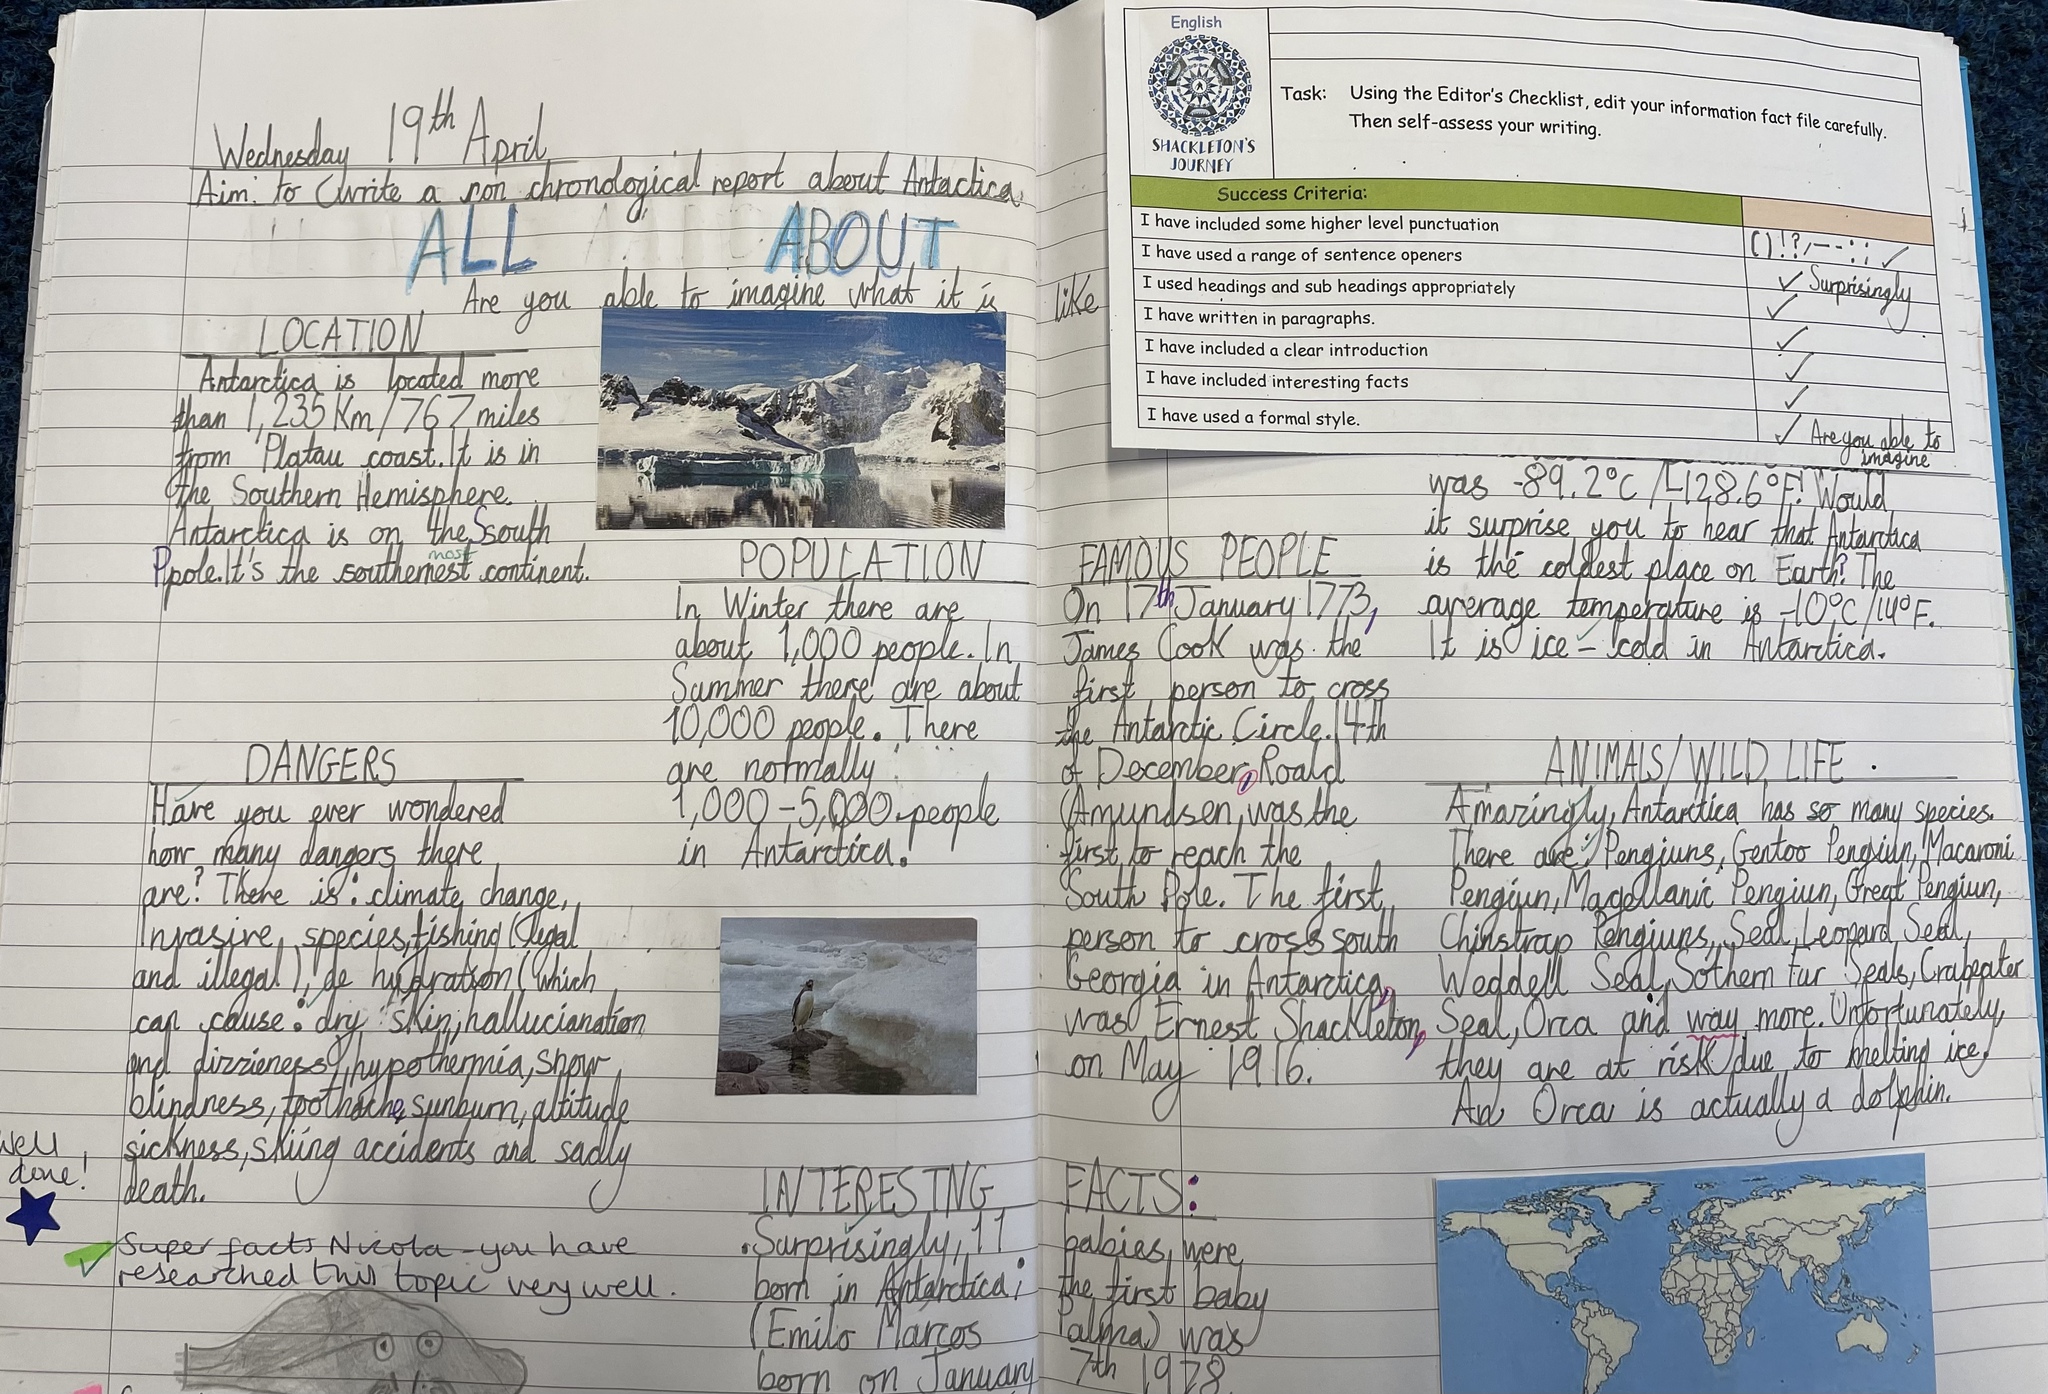 Wednesday 19th April
Aim: to write a non chronological report about Antactica
ALL ABOUT
Are you able to imagine what it is like
LOCATION
Antarctica is located more
than 1,235 Km/767 miles
from Platau coast. It is in
the Southern Hemisphere.
Antarctica is on the South
Ppole. It's the southernest continent.
most
DANGERS
Have you ever wondered
how many dangers there
are? There is: climate change,
Invasive species, fishing (legal
and illegal), de hydration (which
can cause: dry skin, hallucianation
and dizzieness), hypothermia, snow
blindness, toothache, sunburn, altitude
sickness, skiing accidents and sadly
death.
Well
done!
Super facts Nicola - you have
researched this topic very well.
POPULATION
In Winter there are
about 1,000 people. In
Summer there are about
10,000 people. There
are normally
1,000-5,000 people
in Antarctica!
INTERESTING FACTS:
Surprisingly, 11 babies were
born in Antarctica; the first baby
(Emilo Marcos Palma) was
born on January 7th 1978
English
SHACKLETON'S
JOURNEY
Task: Using the Editor's Checklist, edit your information fact file carefully.
Then self-assess your writing.
Success Criteria:
I have included some higher level punctuation ()!?,--:; ✓
I have used a range of sentence openers ✓ Surprisingly
I used headings and sub headings appropriately ✓
I have written in paragraphs. ✓
I have included a clear introduction ✓
I have included interesting facts ✓
I have used a formal style. ✓ Are you able to
imagine
FAMOUS PEOPLE
On 17th January 1773,
James Cook was the
first person to cross
the Antarctic Circle. 14th
of December, Roald
Amundsen was the
first to reach the
South Pole. The first
person to cross south
Georgia in Antarctica,
was Ernest Shackleton,
on May 1916.
was -89.2°C/-128.6°F! Would
it surprise you to hear that Antarctica
is the coldest place on Earth? The
average temperature is -10°C/14°F.
It is ice-cold in Antarctica.
ANIMALS/WILD LIFE
Amazingly, Antarctica has so many species.
There are: Pengiuns, Gentoo Pengiun, Macaroni
Pengiun, Magellanic Pengiun, Great Pengiun,
Chinstrap Pengiuns, Seal, Leopard Seal,
Weddell Seal, Sothern Fur Seals, Crabeater
Seal, Orca and way more. Unfortunately,
they are at risk due to melting ice.
An Orca is actually a dolphin.